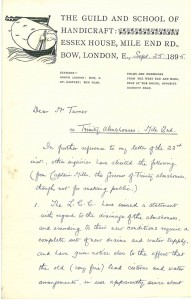 THE GUILD AND SCHOOL OF
HANDICRAFT:
ESSEX HOUSE, MILE END RD.,
BOW, LONDON, E., Sept. 25 1895
Dear Mr Turner
re Trinity Almshouses. Mile End.
In further reference to my letter of the 23rd
inst. other inquiries have elicited the following
(from Captain Mills, the Governor of Trinity Almshouses,
though not for making public).
1. The L.C.C. have issued a statement
with regard to the drainage of the almshouses,
and according to their new conditions require a
complete set of new drains and water supply,
and have given notice also to the effect that
the old (very fine) lead cisterns and water
arrangements, in use apparently since about